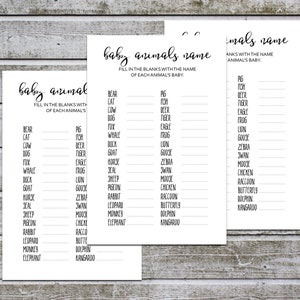 baby animals name
FILL IN THE BLANKS WITH THE NAME
OF EACH ANIMAL'S BABY.
BEAR PIG
CAT FISH
COW DEER
DOG TIGER
FOX EAGLE
WHALE FROG
DUCK LION
GOAT GOOSE
HORSE ZEBRA
SEAL SWAN
SHEEP MOOSE
PIGEON CHICKEN
RABBIT RACCOON
LEOPARD BUTTERFLY
MONKEY DOLPHIN
ELEPHANT KANGAROO
baby animals name
FILL IN THE BLANKS WITH THE NAME
OF EACH ANIMAL'S BABY.
BEAR PIG
CAT FISH
COW DEER
DOG TIGER
FOX EAGLE
WHALE FROG
DUCK LION
GOAT GOOSE
HORSE ZEBRA
SEAL SWAN
SHEEP MOOSE
PIGEON CHICKEN
RABBIT RACCOON
LEOPARD BUTTERFLY
MONKEY DOLPHIN
ELEPHANT KANGAROO
animals name
BLANKS WITH THE NAME
ANIMAL'S BABY.
PIG
FISH
DEER
TIGER
EAGLE
FROG
LION
GOOSE
ZEBRA
SWAN
MOOSE
CHICKEN
RACCOON
BUTTERFLY
DOLPHIN
KANGAROO